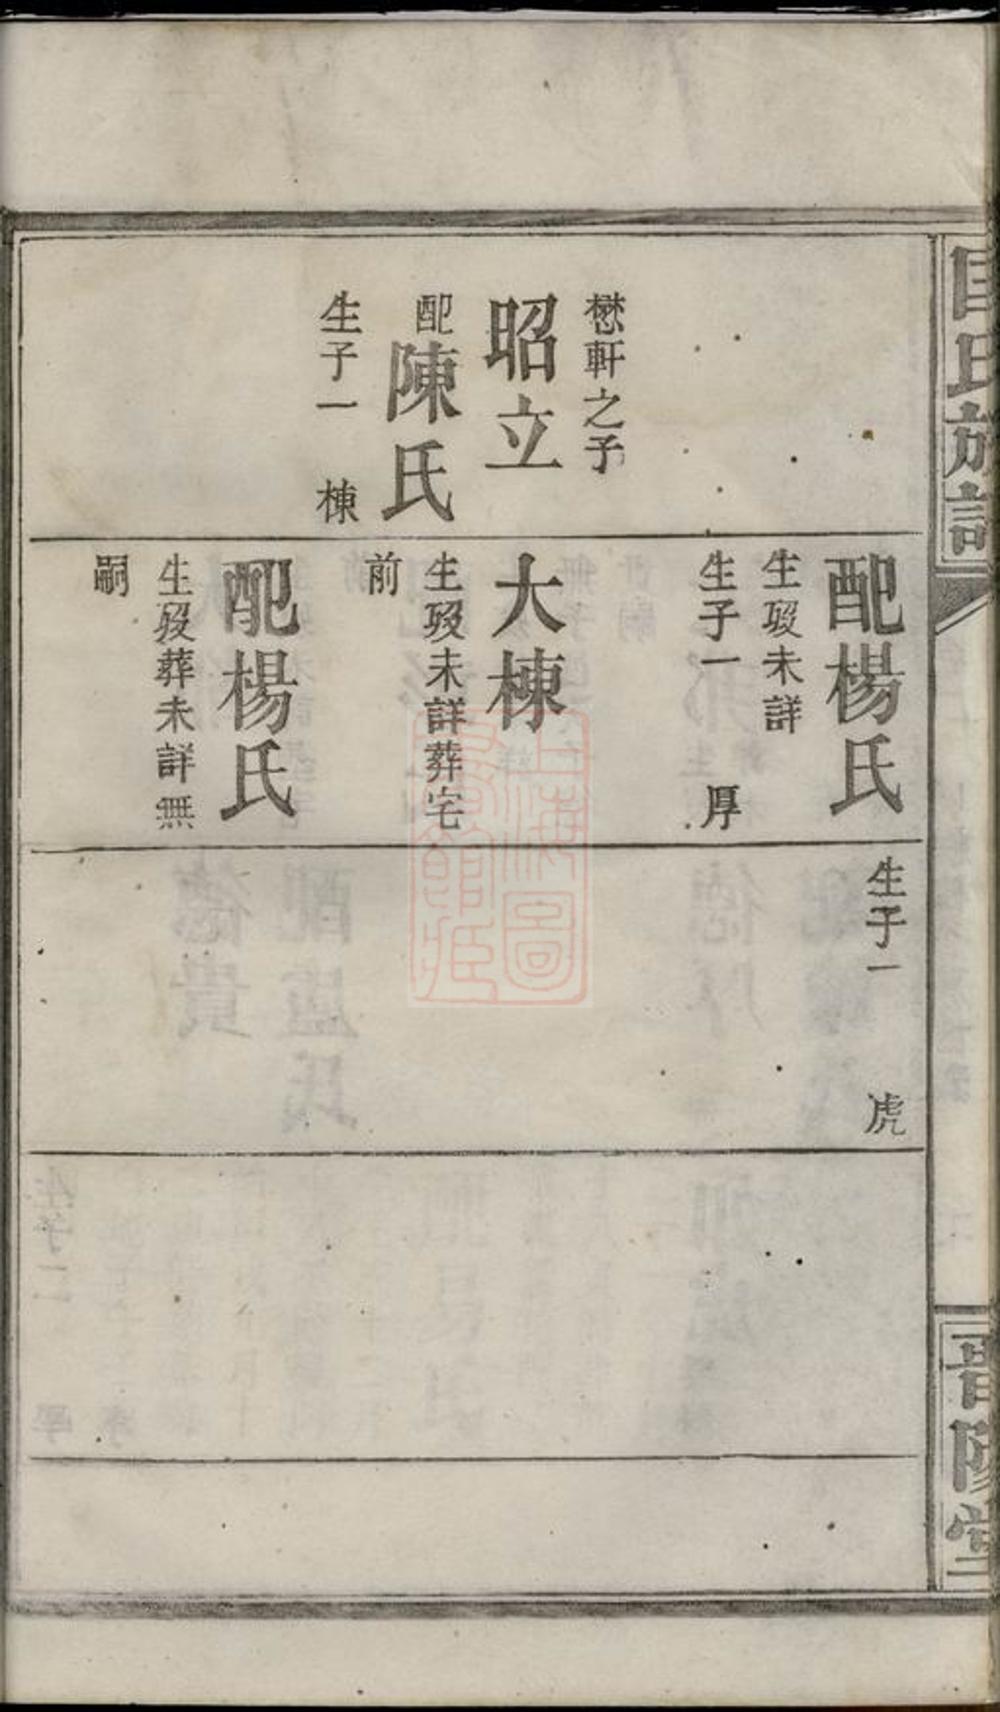 懋軒之子
昭立
配陳氏
生子一 棟
配楊氏
生歿未詳
生子一 厚
大棟
生歿未詳葬宅
前
配楊氏
生歿葬未詳無
嗣
生子一 虎
氏族譜
晋陽堂
上海圖
書館藏